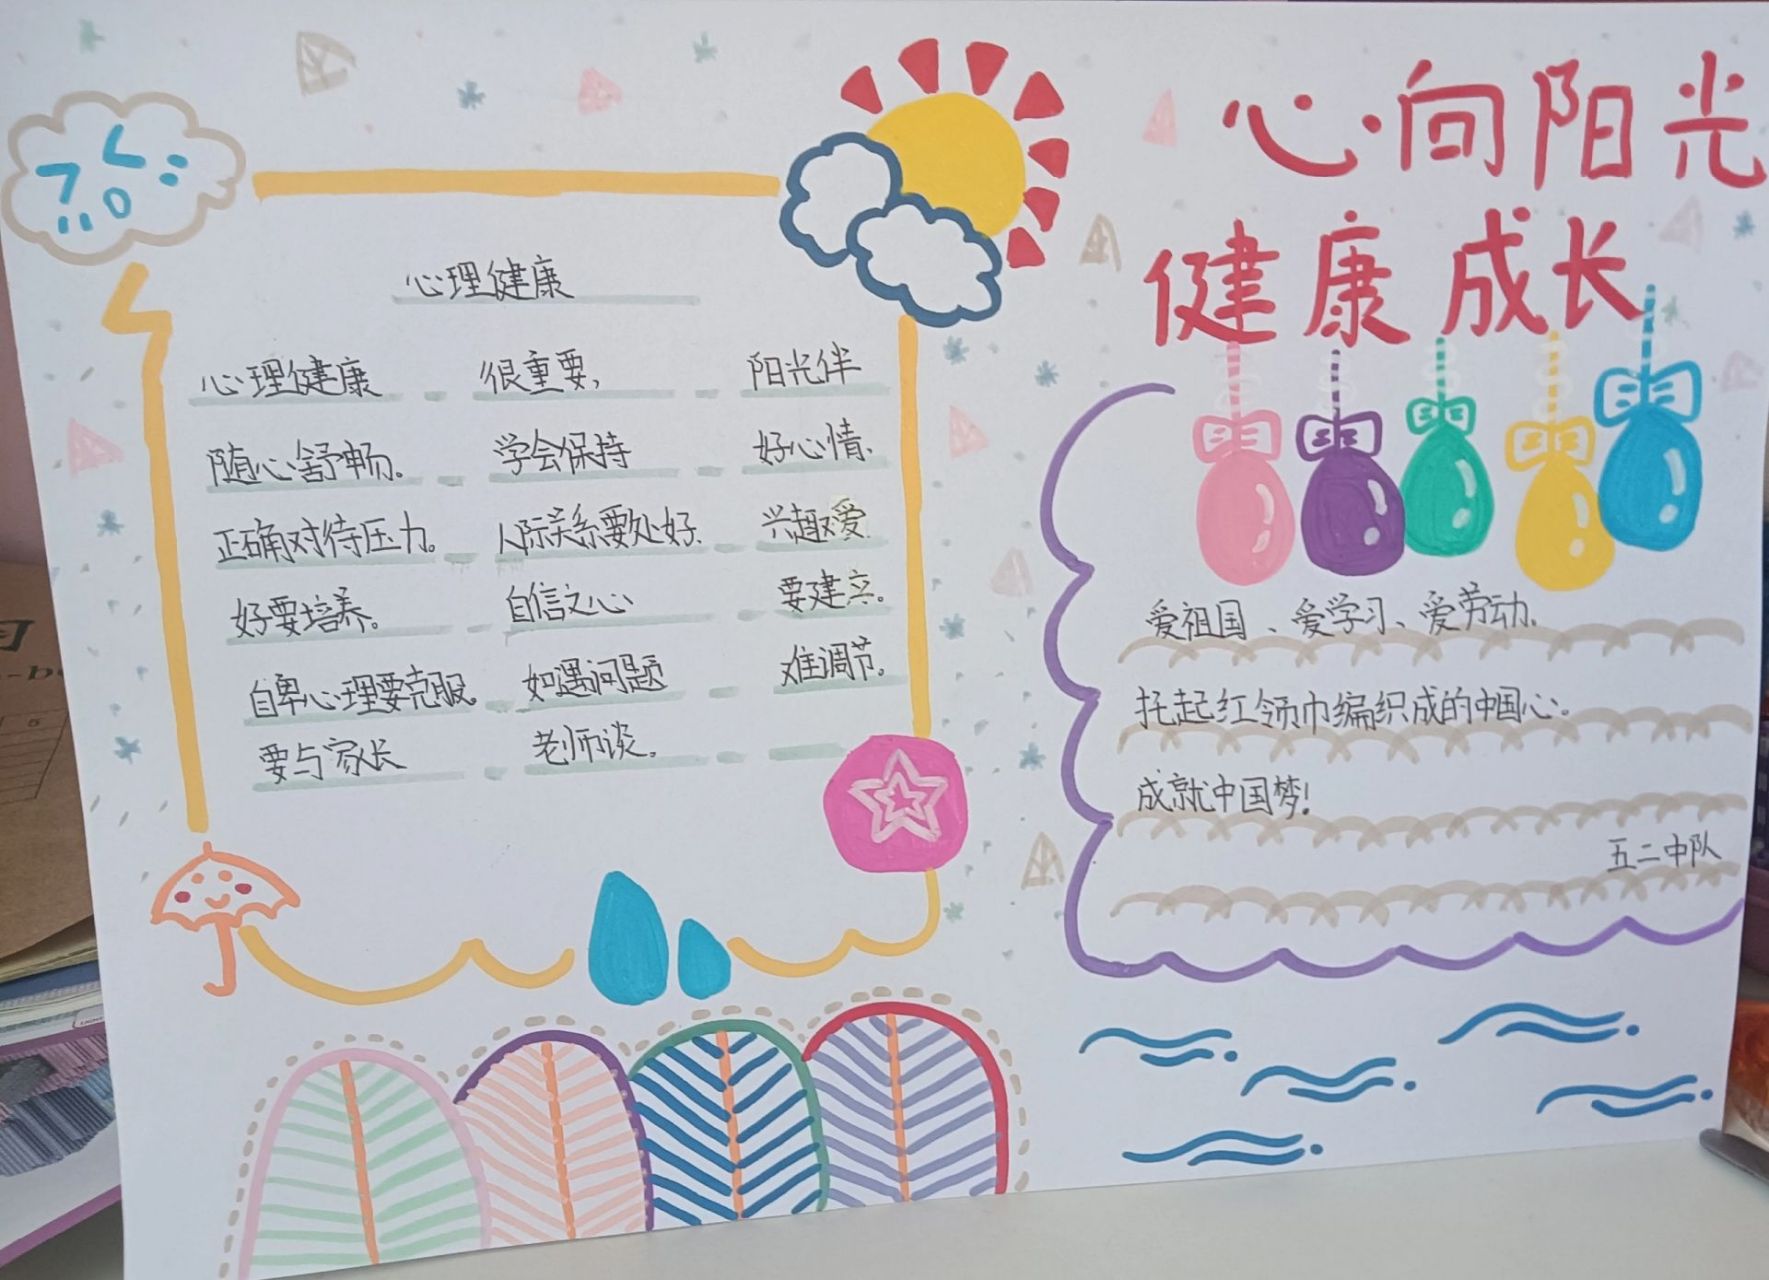 心向阳光
健康成长
心理健康
心理健康 很重要, 阳光伴
随心舒畅。 学会保持 好心情.
正确对待压力。 人际关系要处好. 兴趣爱
好要培养。 自信之心 要建立。
自卑心理要克服. 如遇问题 难调节。
要与家长 老师谈。
爱祖国、爱学习、爱劳动.
托起红领巾编织成的中国心。
成就中国梦!
五二中队